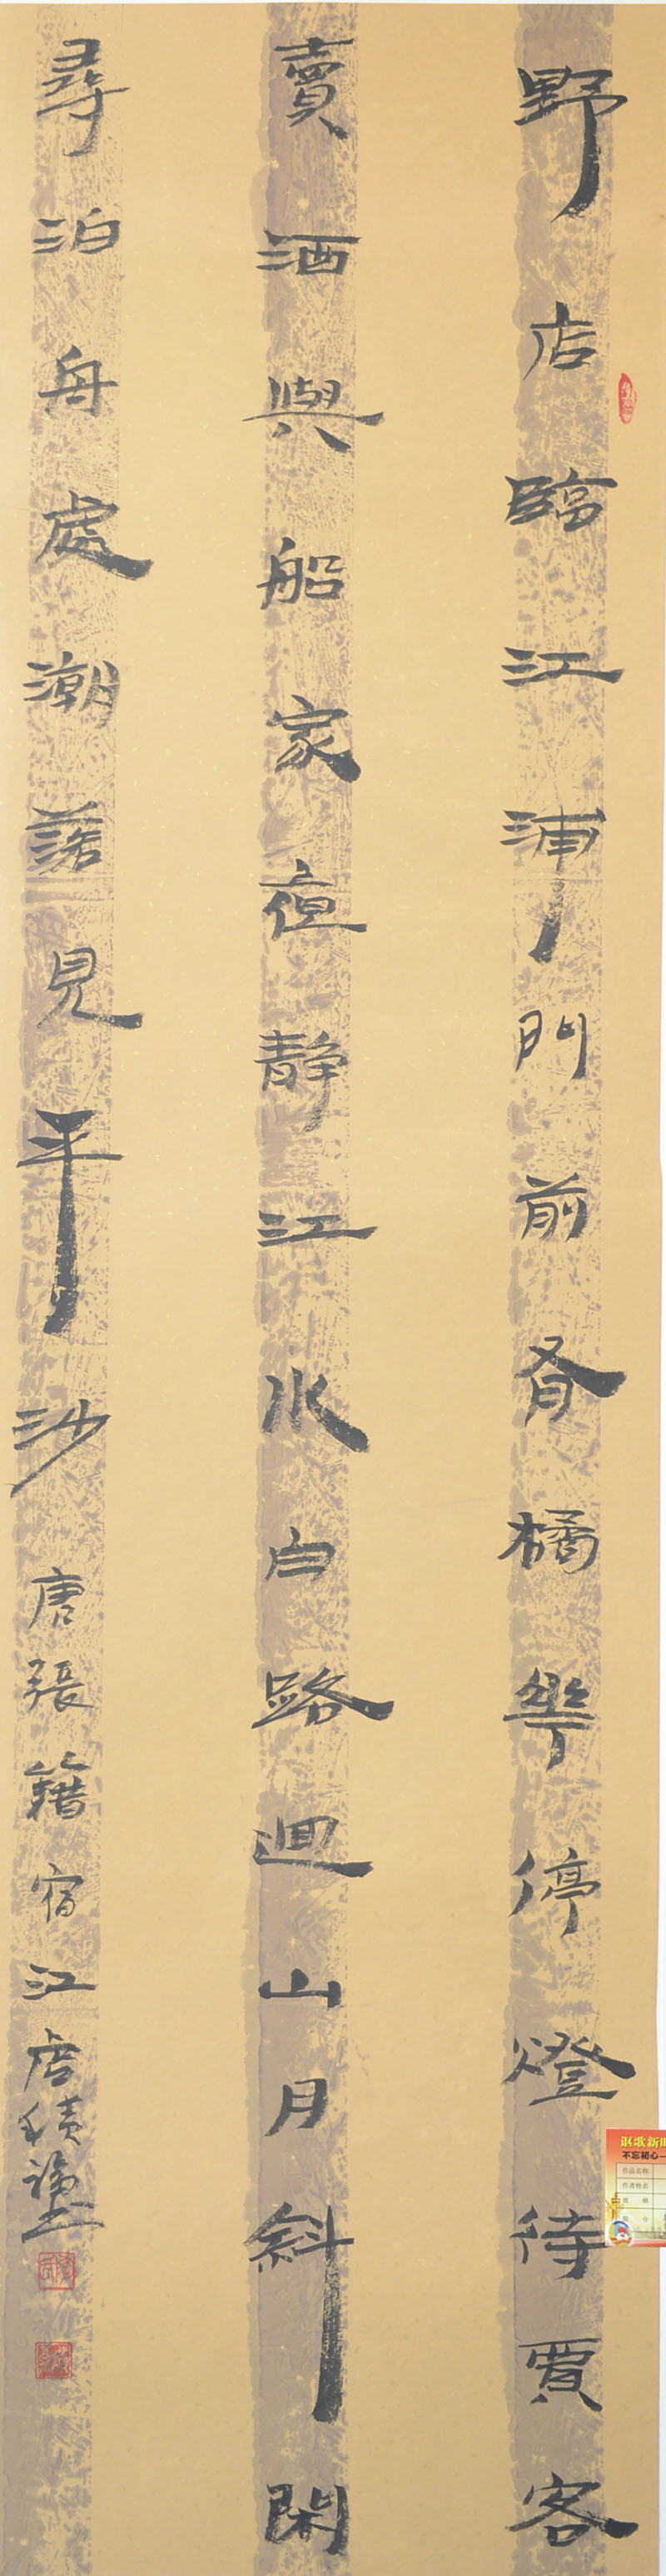 野店臨江浦門前有橘花停燈待賈客
賣酒與船家夜靜江水白路迴山月斜閑
尋泊舟處潮落見平沙唐張籍宿江店
謳歌新時
不忘初心
作品名称
作者姓名
规格